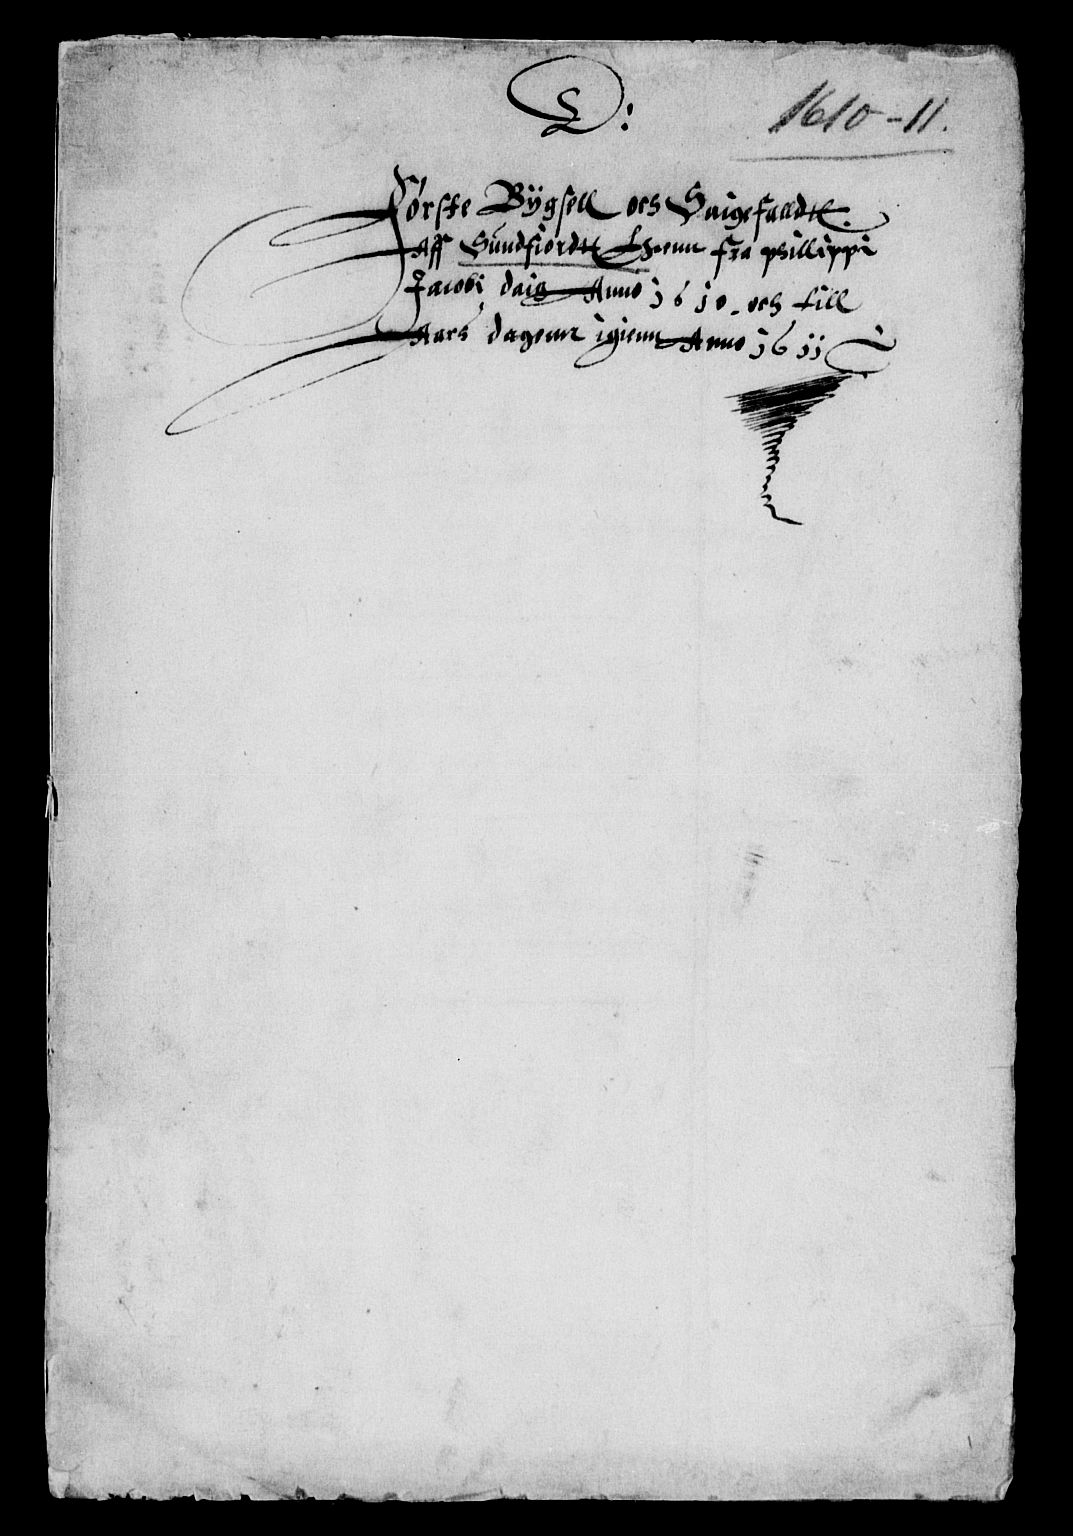 1610-11.
Første Bÿgsell och Saigefalldtt.
Aff Sundfiordtt Lheenn fra phillippi
Jacobi daig Anno 1610. och till
Aars dagenn igienn Anno 1611